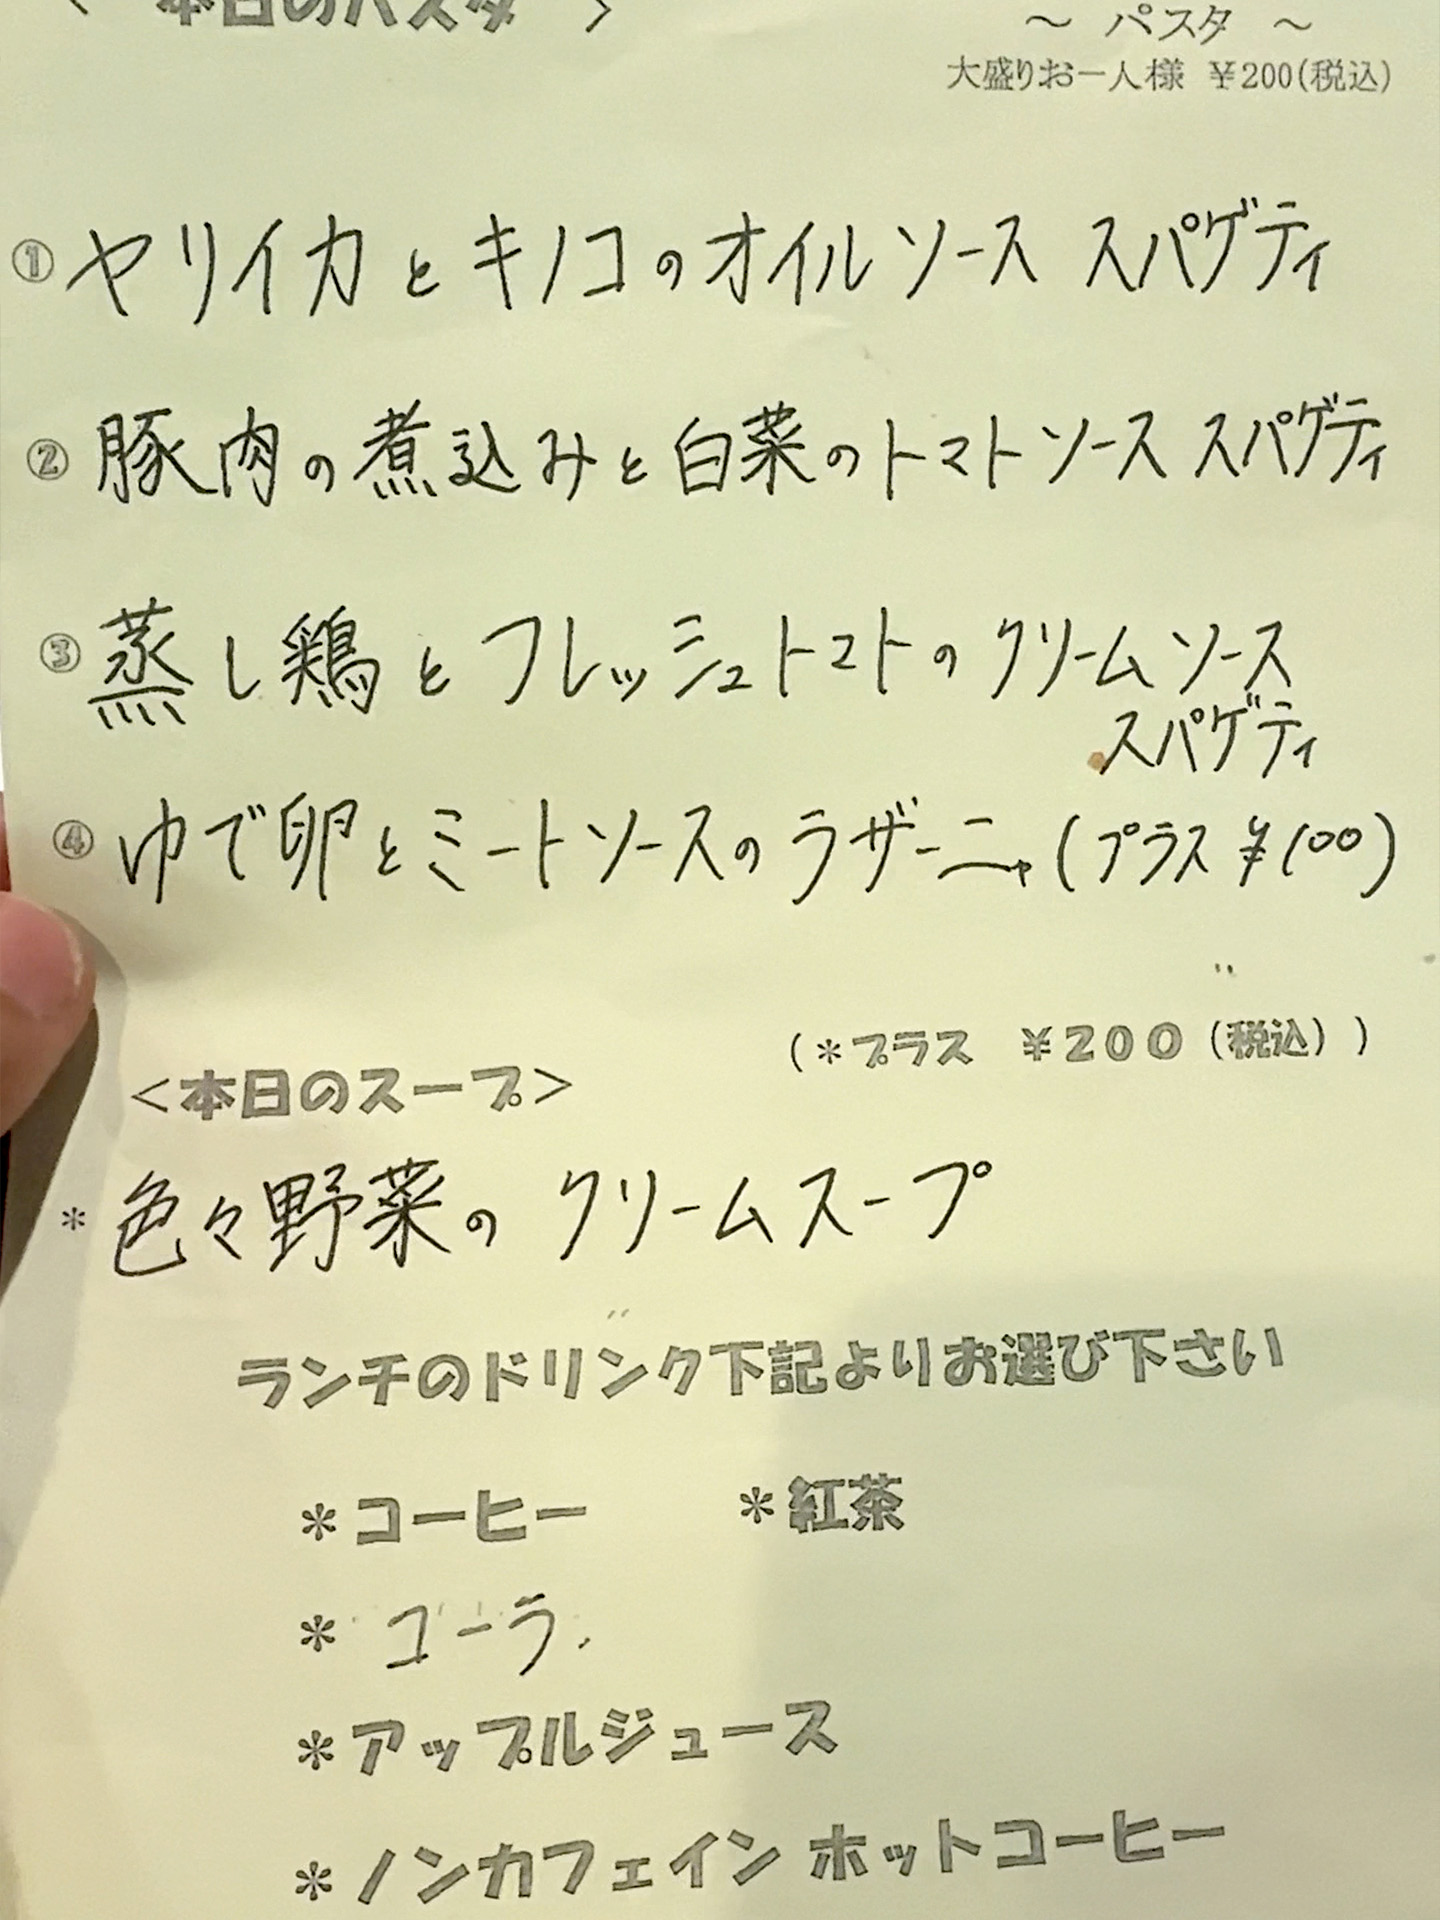 < 本日のパスタ >
～ パスタ ～
大盛りお一人様 ￥200(税込)
①ヤリイカとキノコのオイルソース スパゲティ
②豚肉の煮込みと白菜のトマトソース スパゲティ
③蒸し鶏とフレッシュトマトのクリームソース
スパゲティ
④ゆで卵とミートソースのラザーニャ(プラス ¥100)
(＊プラス ￥200(税込))
<本日のスープ>
＊色々野菜のクリームスープ
ランチのドリンク下記よりお選び下さい
＊コーヒー ＊紅茶
＊コーラ
＊アップルジュース
＊ノンカフェイン ホットコーヒー